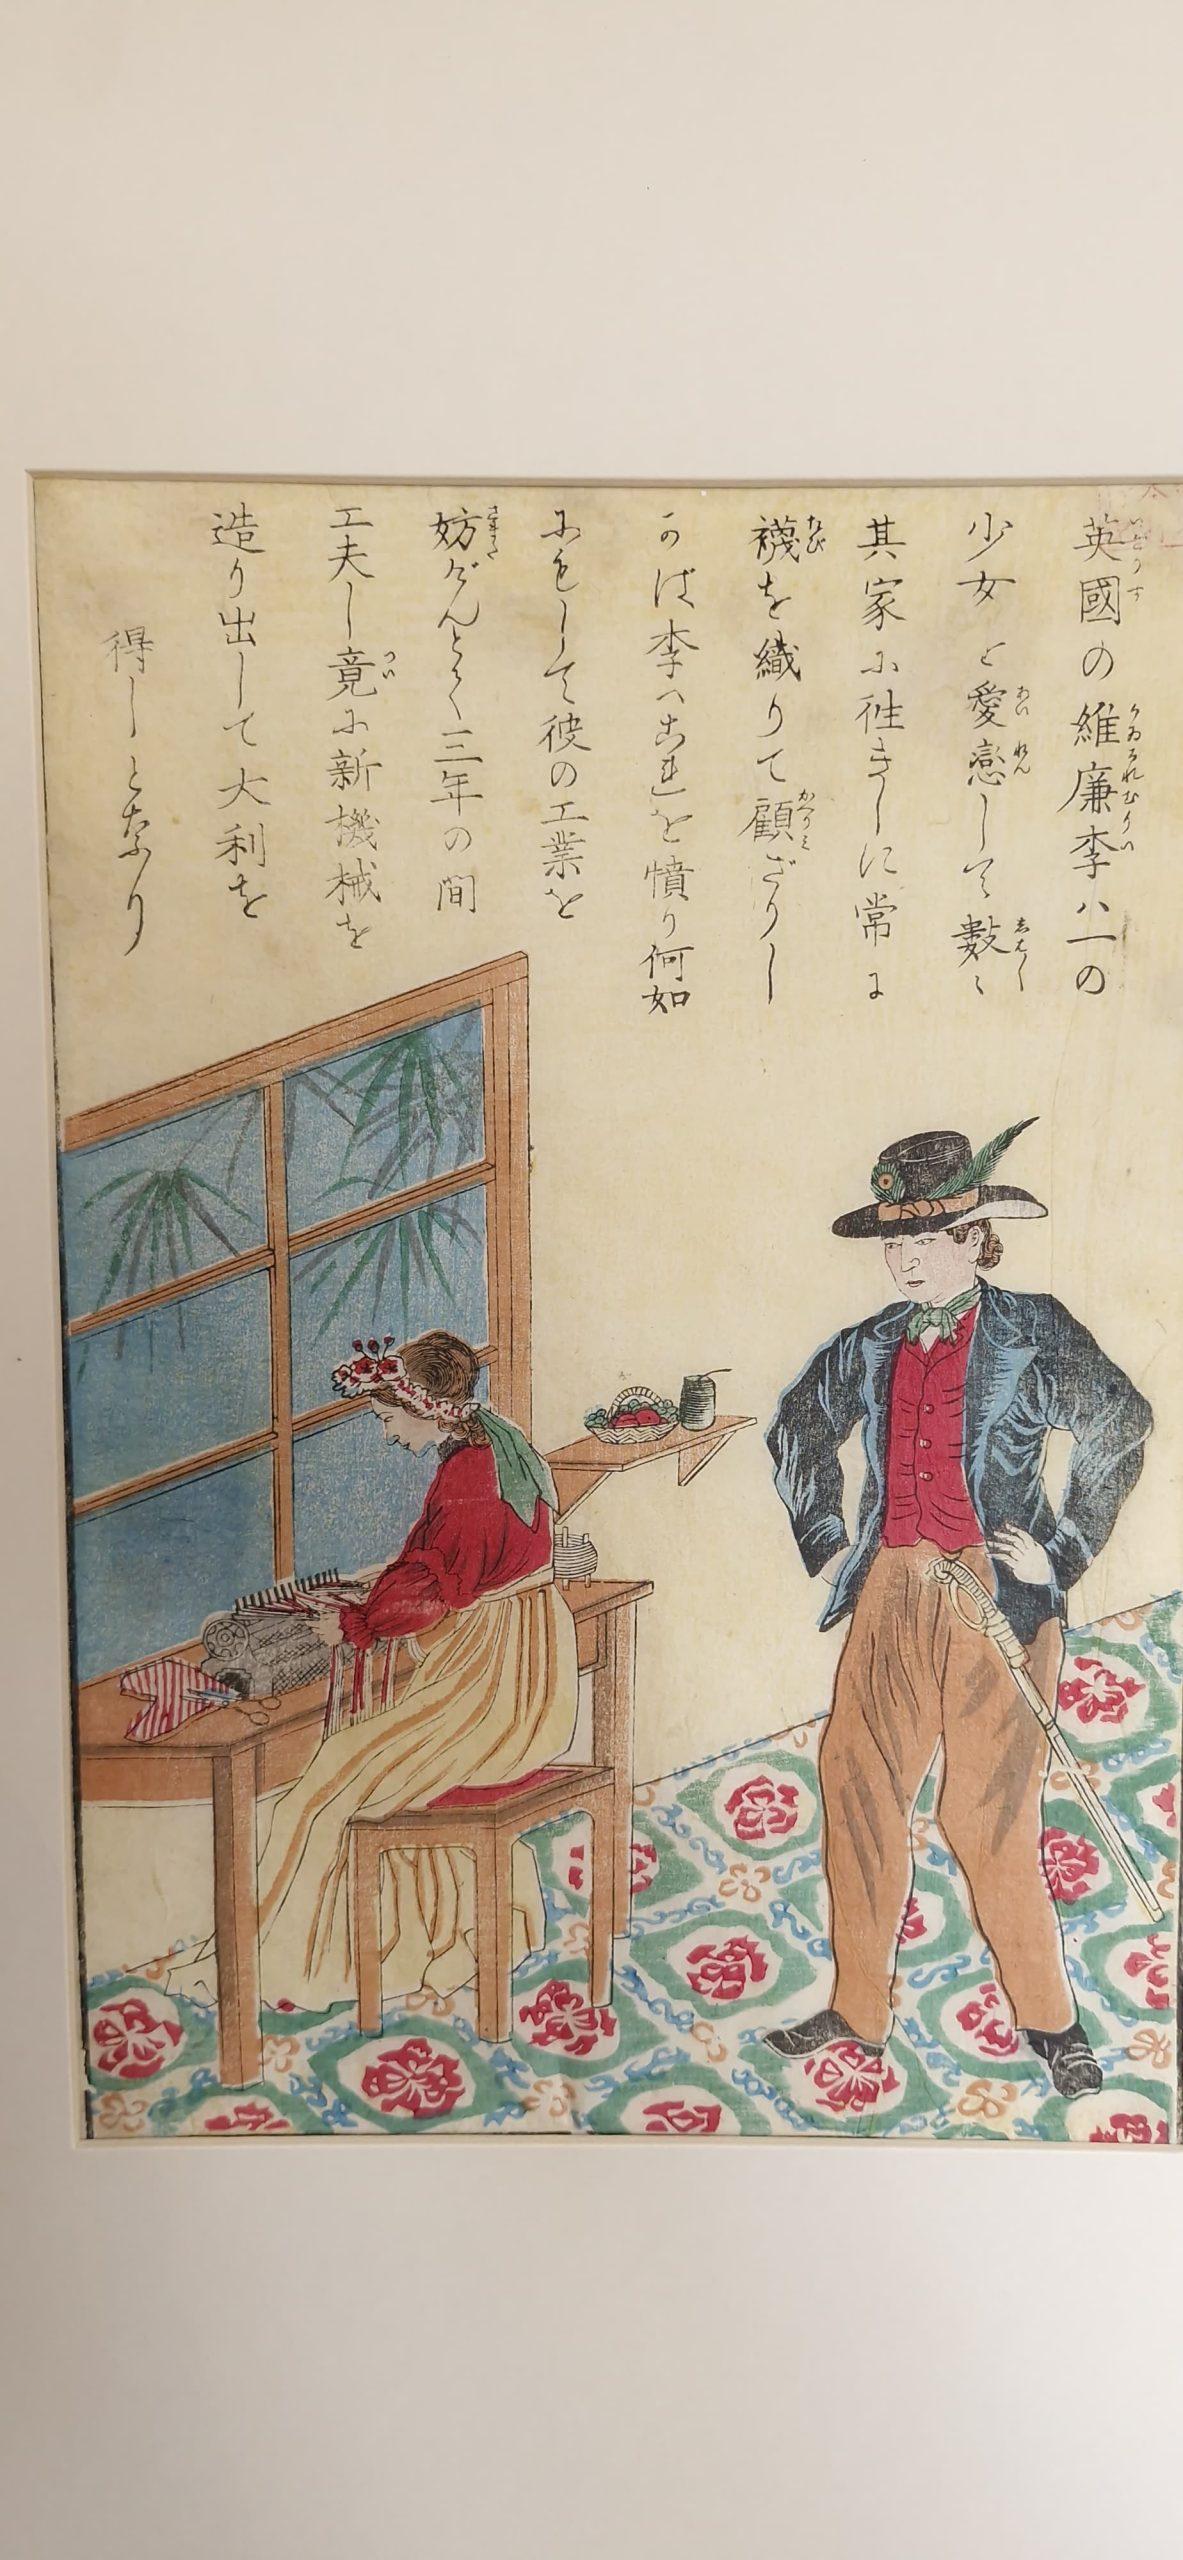 英國の維廉李ハ一の
少女と愛戀して數〻
其家に往きしに常に
襪を織りて顧ざりし
かば李ハこれを憤り何如
にもして彼の工業を
妨げんとて三年の間
工夫し竟に新機械を
造り出して大利を
得しとなり